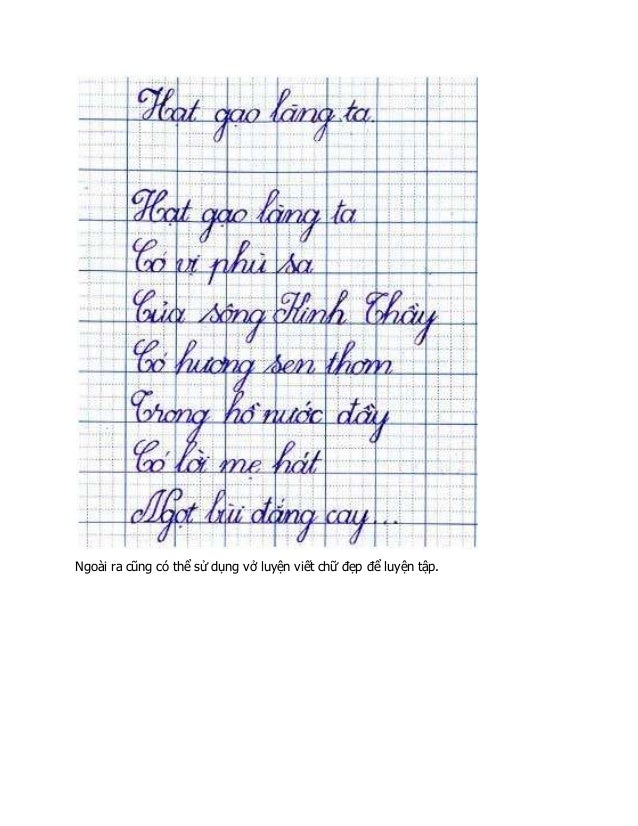 Hạt gạo làng ta.
Hạt gạo làng ta
Có vị phù sa
Của sông Kinh Thầy
Có hương sen thơm
Trong hồ nước đầy
Có lời mẹ hát
Ngọt bùi đắng cay...
Ngoài ra cũng có thể sử dụng vở luyện viết chữ đẹp để luyện tập.